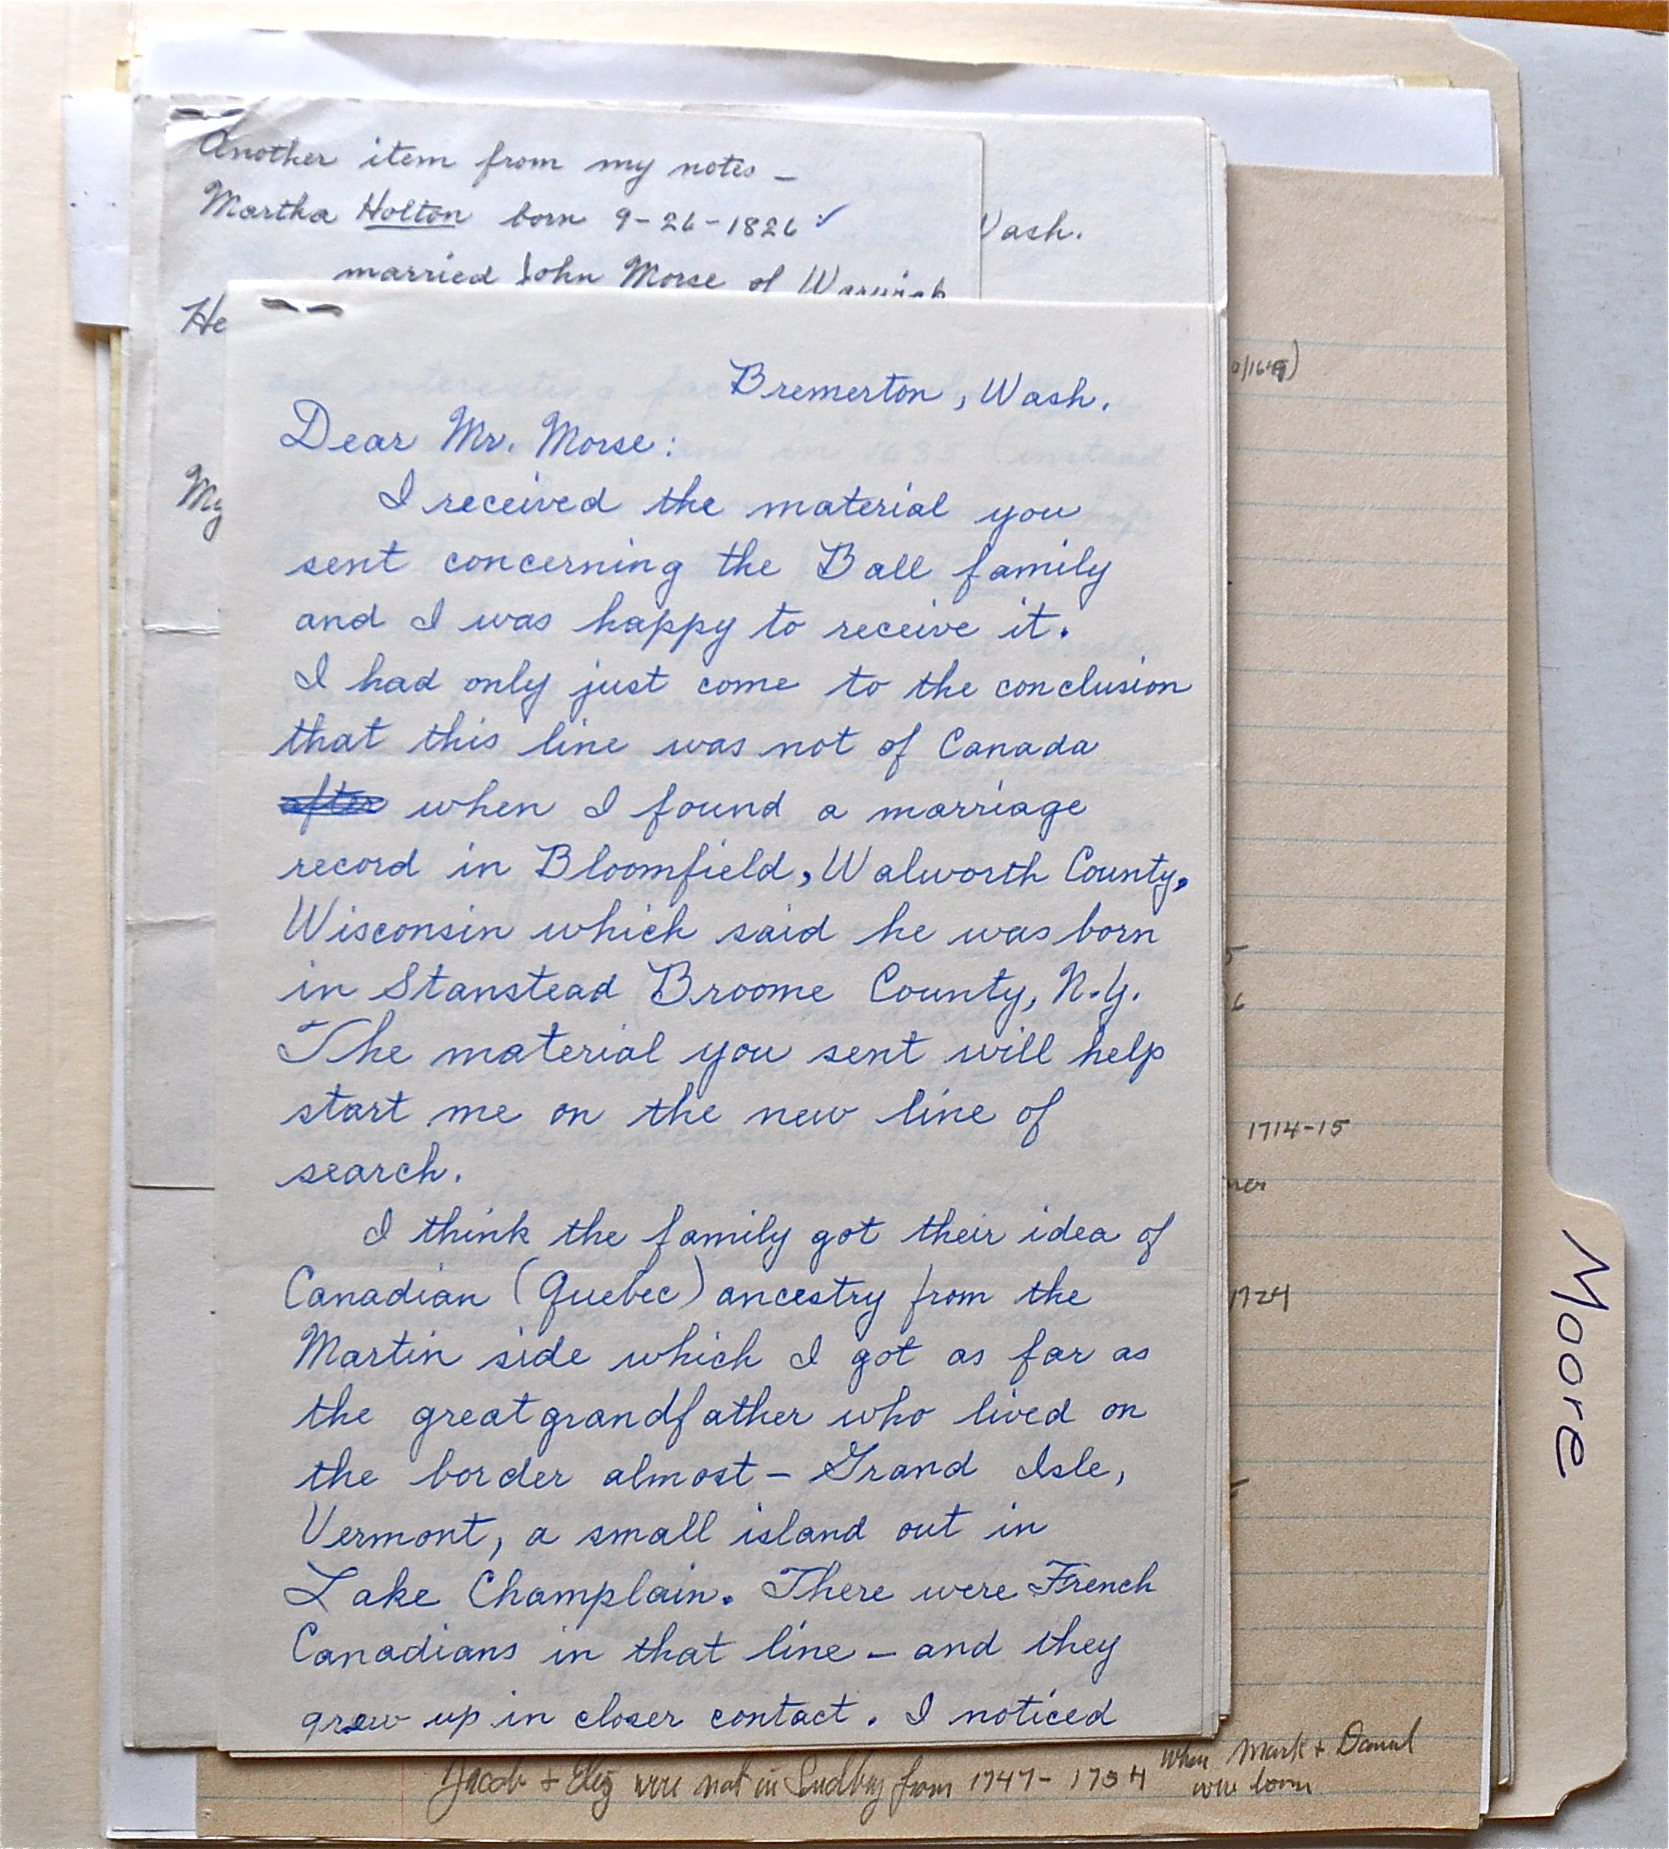 Another item from my notes –
Martha Holton born 9-26-1826 ✓
married John Morse of Warwick
Wash.
He
My
Bremerton, Wash.
Dear Mr. Morse:
I received the material you
sent concerning the Ball family
and I was happy to receive it.
I had only just come to the conclusion
that this line was not of Canada
after when I found a marriage
record in Bloomfield, Walworth County,
Wisconsin which said he was born
in Stanstead Broome County, N.Y.
The material you sent will help
start me on the new line of
search.
I think the family got their idea of
Canadian (Quebec) ancestry from the
Martin side which I got as far as
the great grandfather who lived on
the border almost – Grand Isle,
Vermont, a small island out in
Lake Champlain. There were French
Canadians in that line – and they
grew up in closer contact. I noticed
1714-15
1724
Jacob + Eliz were not in Sudbury from 1747-1754 when Mark + Daniel
were born
Moore